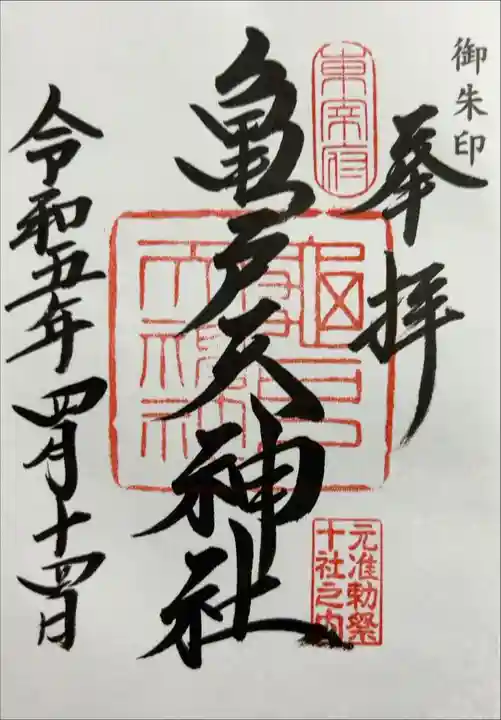 御朱印
奉拝
東宰府
亀戸天神社
亀戸天神社
元准勅祭
十社之内
令和五年四月十四日